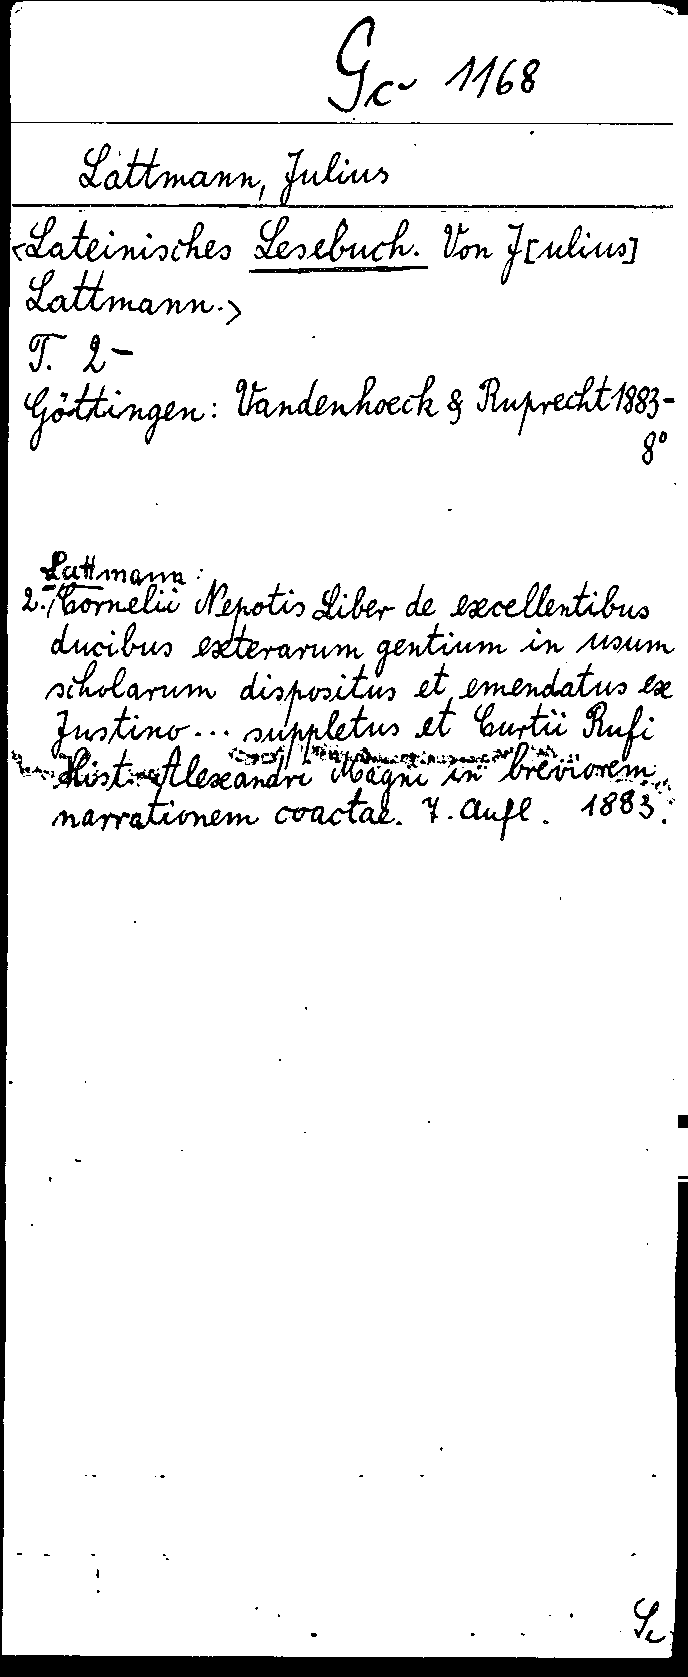 Gc 1168
Lattmann, Julius
<Lateinisches Lesebuch. Von J[ulius]
Lattmann.>
T. 2-
Göttingen: Vandenhoeck & Ruprecht 1883-
8°
Lattmann:
2. /Cornelii Nepotis Liber de excellentibus
ducibus exterarum gentium in usum
scholarum dispositus et emendatus ex
Justino... suppletus et Curtii Rufi
Hist. Alexandri Magni in breviorem
narrationem coactae. 7. Aufl. 1883.